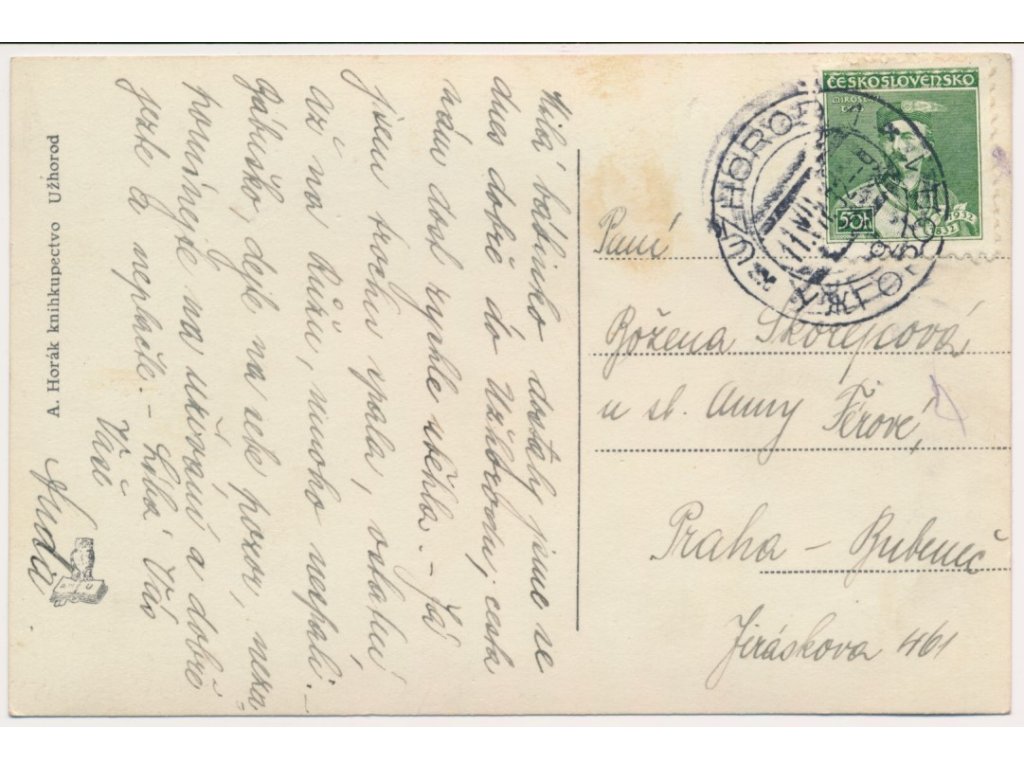 Milá babinko, dostaly jsme se
dnes dobře do Užhorodu, cesta
nám dost rychle utekla. – Já
jsem trochu spala, ostatní
až na Růžu, mnoho nespali. –
Babuško, dejte na sebe pozor,
pomůnejte na užívání a dobře
jezte a neplačte. – Líbá Vás
Vaše
Luda
A. Horák knihkupectvo Užhorod
ČESKOSLOVENSKO
50h
1932
UŽHOROD 1
УЖГОРОД
Paní
Božena Skořepová,
u sl. Anny Férové,
Praha – Bubeneč
Jiráskova 461